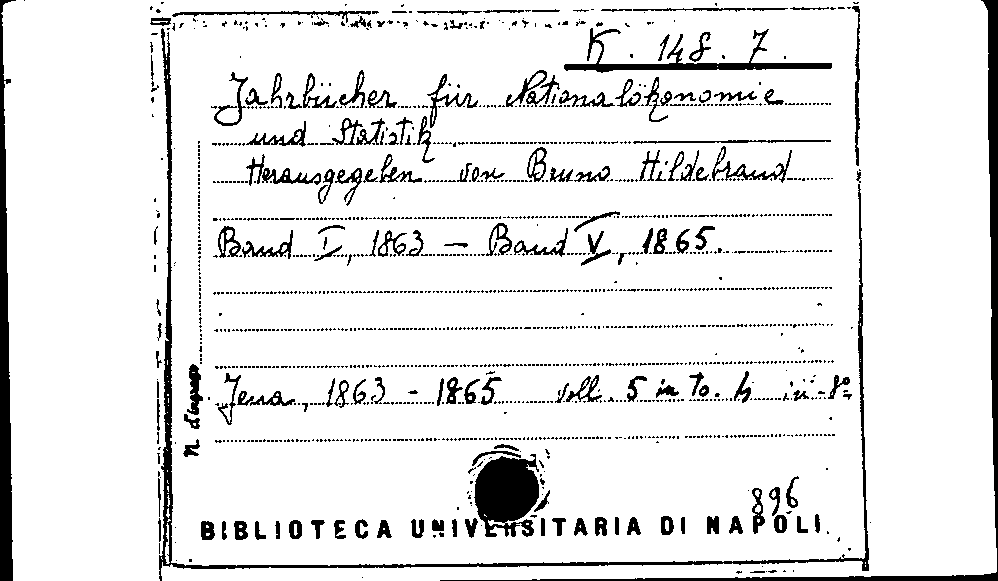 K. 148. 7.
Jahrbücher für Nationalökonomie
und Statistik.
Herausgegeben von Bruno Hildebrand
Band I, 1863 – Band V, 1865.
Jena, 1863 - 1865 voll. 5 in to. 4 in-8º
N. d'ingresso
896
BIBLIOTECA UNIVERSITARIA DI NAPOLI